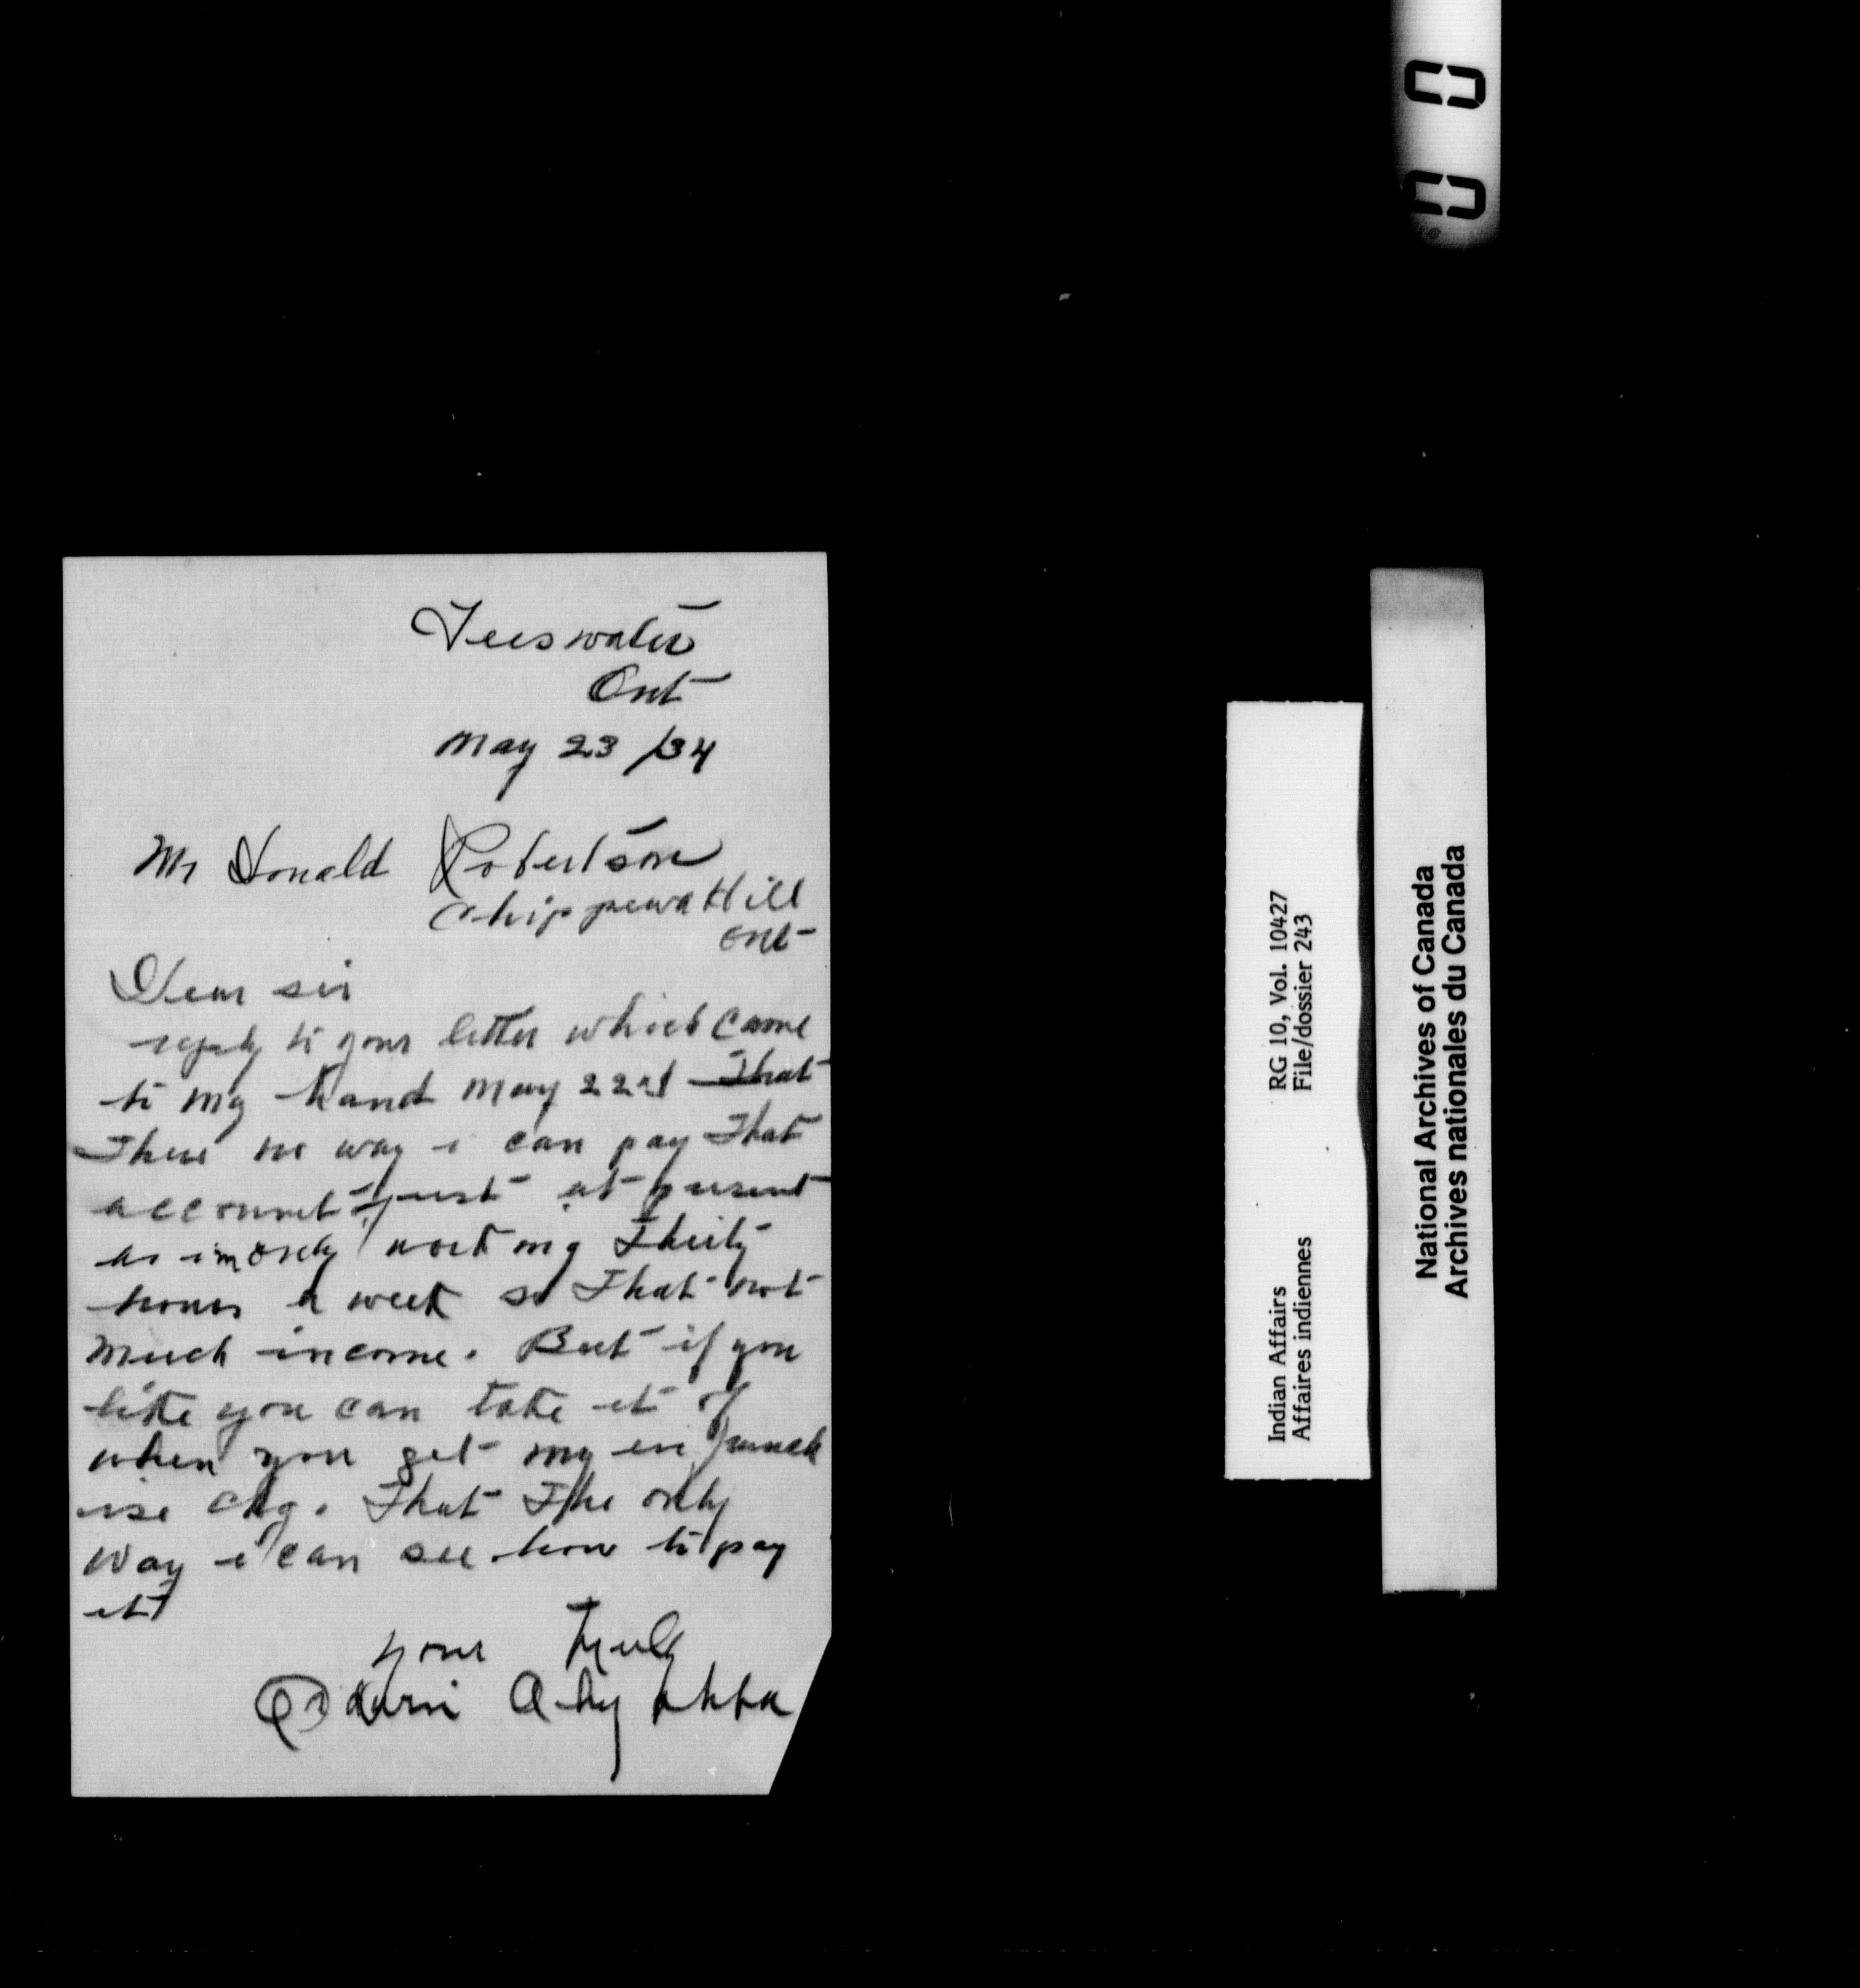 Teeswater
Ont
May 23 /34
Mr Donald Robertson
Chippewa Hill
Ont
Dear sir
reply to your letter which came
to my hand May 22nd That
There no way i can pay That
account just at present
as im only working Thirty
hours a week so That not
much income. But if you
like you can take it of
when you get my en franch
ise chq. That The only
way i can see how to pay
it
your Truly
RG 10, Vol. 10427
File/dossier 243
Indian Affairs
Affaires indiennes
National Archives of Canada
Archives nationales du Canada